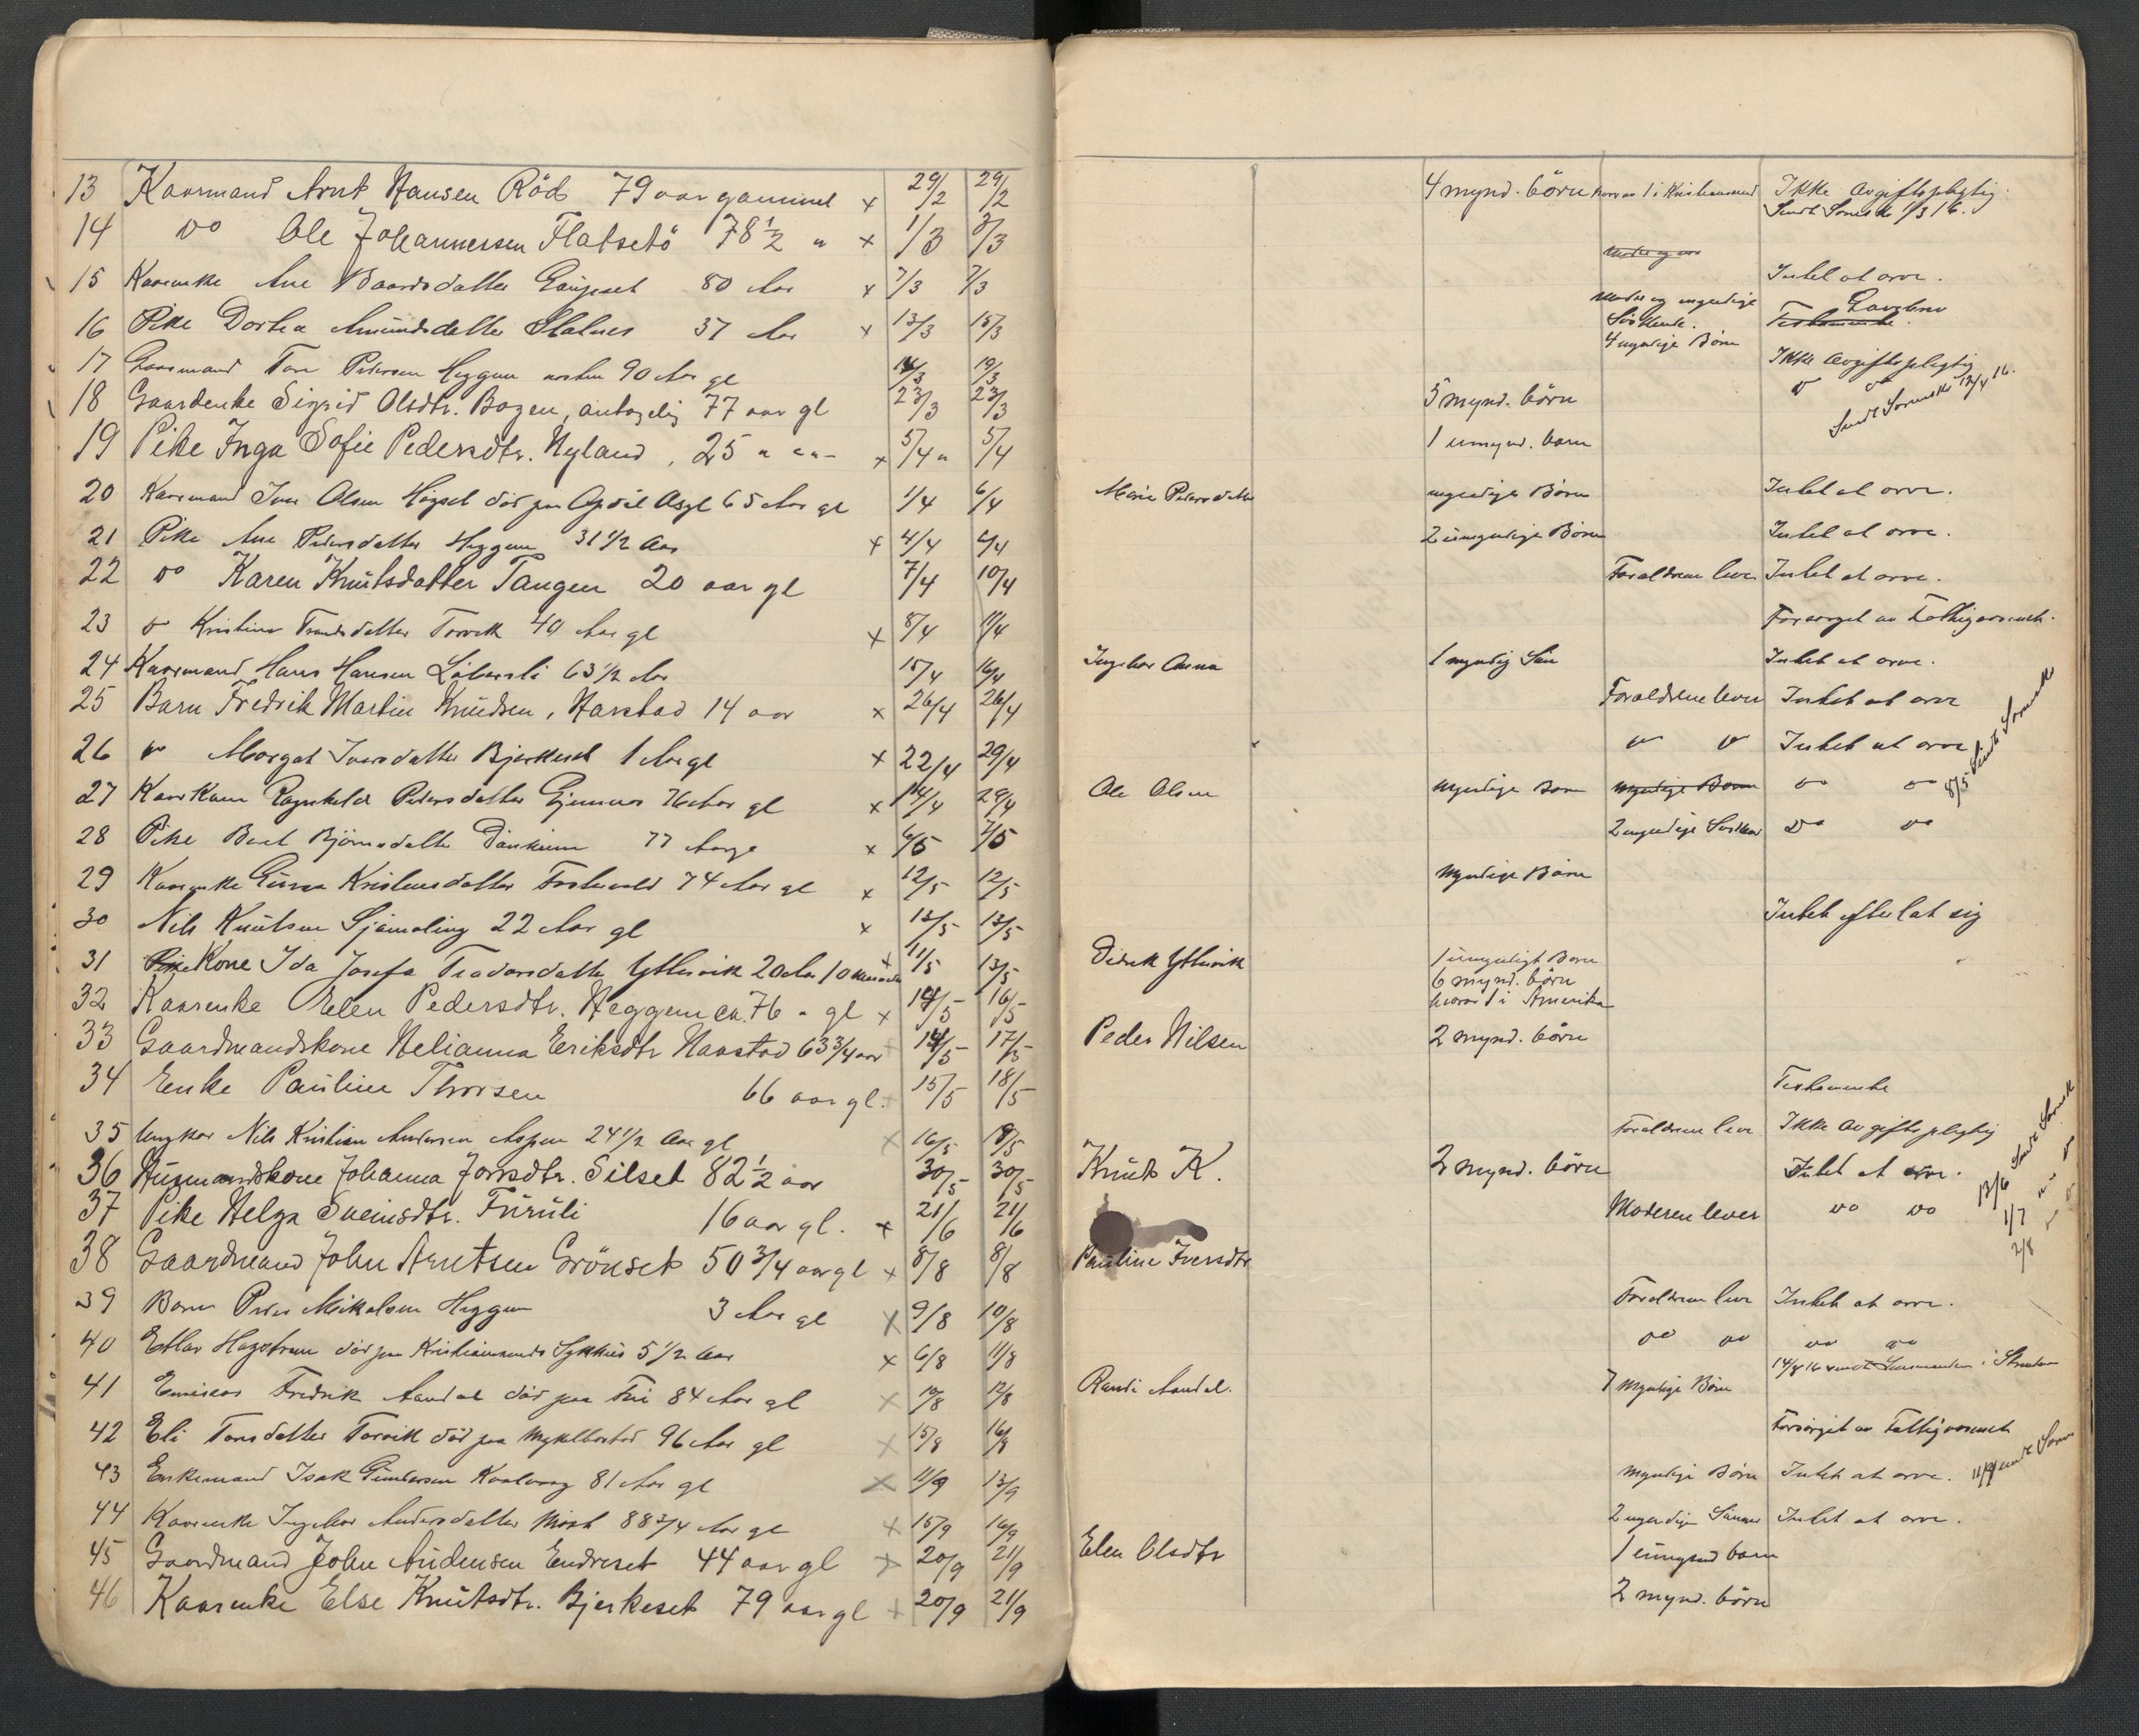 13 Kaarmand Arnt Hansen Röd 79 aar gammel x 29/2 29/2 4 mynd. börn hvorav 1 i Kristiansund Ikke avgiftspligtig.
Sendt Sorensk 1/3 16.
14 do Ole Johannessen Flatsetö 78 1/2 " x 1/3 3/3
15 Kaarenke Ane Baardsdatter Gaupset 80 Aar x 7/3 7/3 Intet at arve.
16 Pike Dorthea Amundsdatter Stalnes 37 Aar x 13/3 15/3 Moder og myndige Söskende. Testamente.
17 Gaarmand Tore Pedersen Heggem næsten 90 Aar gl 14/3 19/3 4 myndige Börn Ikke avgiftspligtig
18 Gaardenke Sigrid Olsdtr. Bogen, antagelig 77 aar gl 23/3 23/3 5 mynd. börn do do
Sendt Sorensk 12/4 16.
19 Pike Inga Sofie Pedersdtr. Nyland, 25 " " " x 5/4 5/4 1 umynd. barn
20 Kaarmand Iver Olsen Högset död paa Opdöl Asyl 65 Aar gl 1/4 6/4 Marie Pedersdatter myndige Börn Intet at arve.
21 Pike Ane Pedersdatter Heggem 31 1/2 Aar x 4/4 6/4 2 umyndige Börn Intet at arve.
22 do Karen Knutsdatter Tangen 20 aar gl 7/4 10/4 Foraldrene lever Intet at arve.
23 do Kristine Trondsdatter Torvik 40 Aar gl x 8/4 11/4 Forsörget av Fattigvæsenet.
24 Kaarmand Hans Hansen 63 1/2 Aar 15/4 16/4 Ingebor Anna 1 myndig Sön Intet at arve.
25 Barn Fredrik Martin Knudsen, Harstad 14 aar x 26/4 26/4 Foraldrene lever Intet at arve
26 do Margat Iversdatter Bjerkeset 1 Aar gl x 22/4 29/4 do do Intet at arve
8/5 Sendt Sorensk
27 Kaarkone Ragnhild Pedersdatter Gjemnes 76 Aar gl x 14/4 29/4 Ole Olsen myndige Barn myndige Barn do do
28 Pike Berit Björnsdatter 77 Aar gl x 6/5 7/5 2 myndige Söskend do do
29 Kaarenke Guroa Kristensdatter 74 Aar gl x 12/5 12/5 Myndige Börn
30 Nils Knutsen Sjömöling 22 Aar gl x 13/5 13/5 Intet efterlat sig
31 Pike Kone Ida Josefa Teodorsdatter Yttervik 20 Aar 10 Maaneder x 11/5 13/5 Didrik Yttervik 1 umyndigt Barn
32 Kaarenke Elen Pedersdtr. Heggem ca. 76 " gl x 14/5 16/5 6 mynd. börn hvorav 1 i Amerika
33 Gaardmandskone Nelianna Eriksdtr Naastad 63 3/4 aar 14/5 17/5 Peder Nilsen 2 mynd. börn
34 Enke Pauline Thorsen 66 aar gl. 15/5 18/5 Testamente
35 Ungkar Nils Kristian Andersen Aspen 24 1/2 Aar gl x 16/5 19/5 Foraldrene lever Ikke avgiftspligtig
36 Husmandskone Johanna Jonsdtr. Silset 82 1/2 aar 30/5 30/5 Knut K. 2 mynd. börn Intet at arve.
13/6 Sendt Sorensk
37 Pike Helga Sveinsdtr. Furuli 16 aar gl. x 21/6 21/6 Moderen lever do do
1/7
2/8
38 Gaardmand John Arntsen Grönset 50 3/4 aar gl x 8/8 8/8 Pauline Iversdtr
39 Barn Peder Mikalsen Heggem 3 Aar gl x 9/8 10/8 Foraldrene lever Intet at arve.
40 Hagstrøm död paa Kristiansunds Sykhus 5 1/2 Aar x 6/8 11/8 do do do do
14/8 16 sendt Lensmanden i Straumsnes
41 Fredrik Aandal död paa 84 Aar gl x 10/8 12/8 Randi Aandal. 7 Myndige Börn
42 Eli Toresdatter Torvik död paa Myklbostad 96 Aar gl x 15/8 16/8 Forsörget av Fattigvæsenet
43 Enkemand Isak Gundersen Kvalvaag 81 Aar gl x 11/9 13/9 Myndige Börn Intet at arve.
11/9 sendt Soren
44 Kaarenke Ingebor Andersdatter 88 3/4 Aar gl x 15/9 16/9 2 myndige Sönner Intet at arve.
45 Gaardmand John Andersen Endreset 44 aar gl x 20/9 21/9 Elen Olsdtr 1 umynd barn
46 Kaarenke Else Knutsdtr. Bjerkeset 79 aar gl x 20/9 21/9 2 mynd. börn